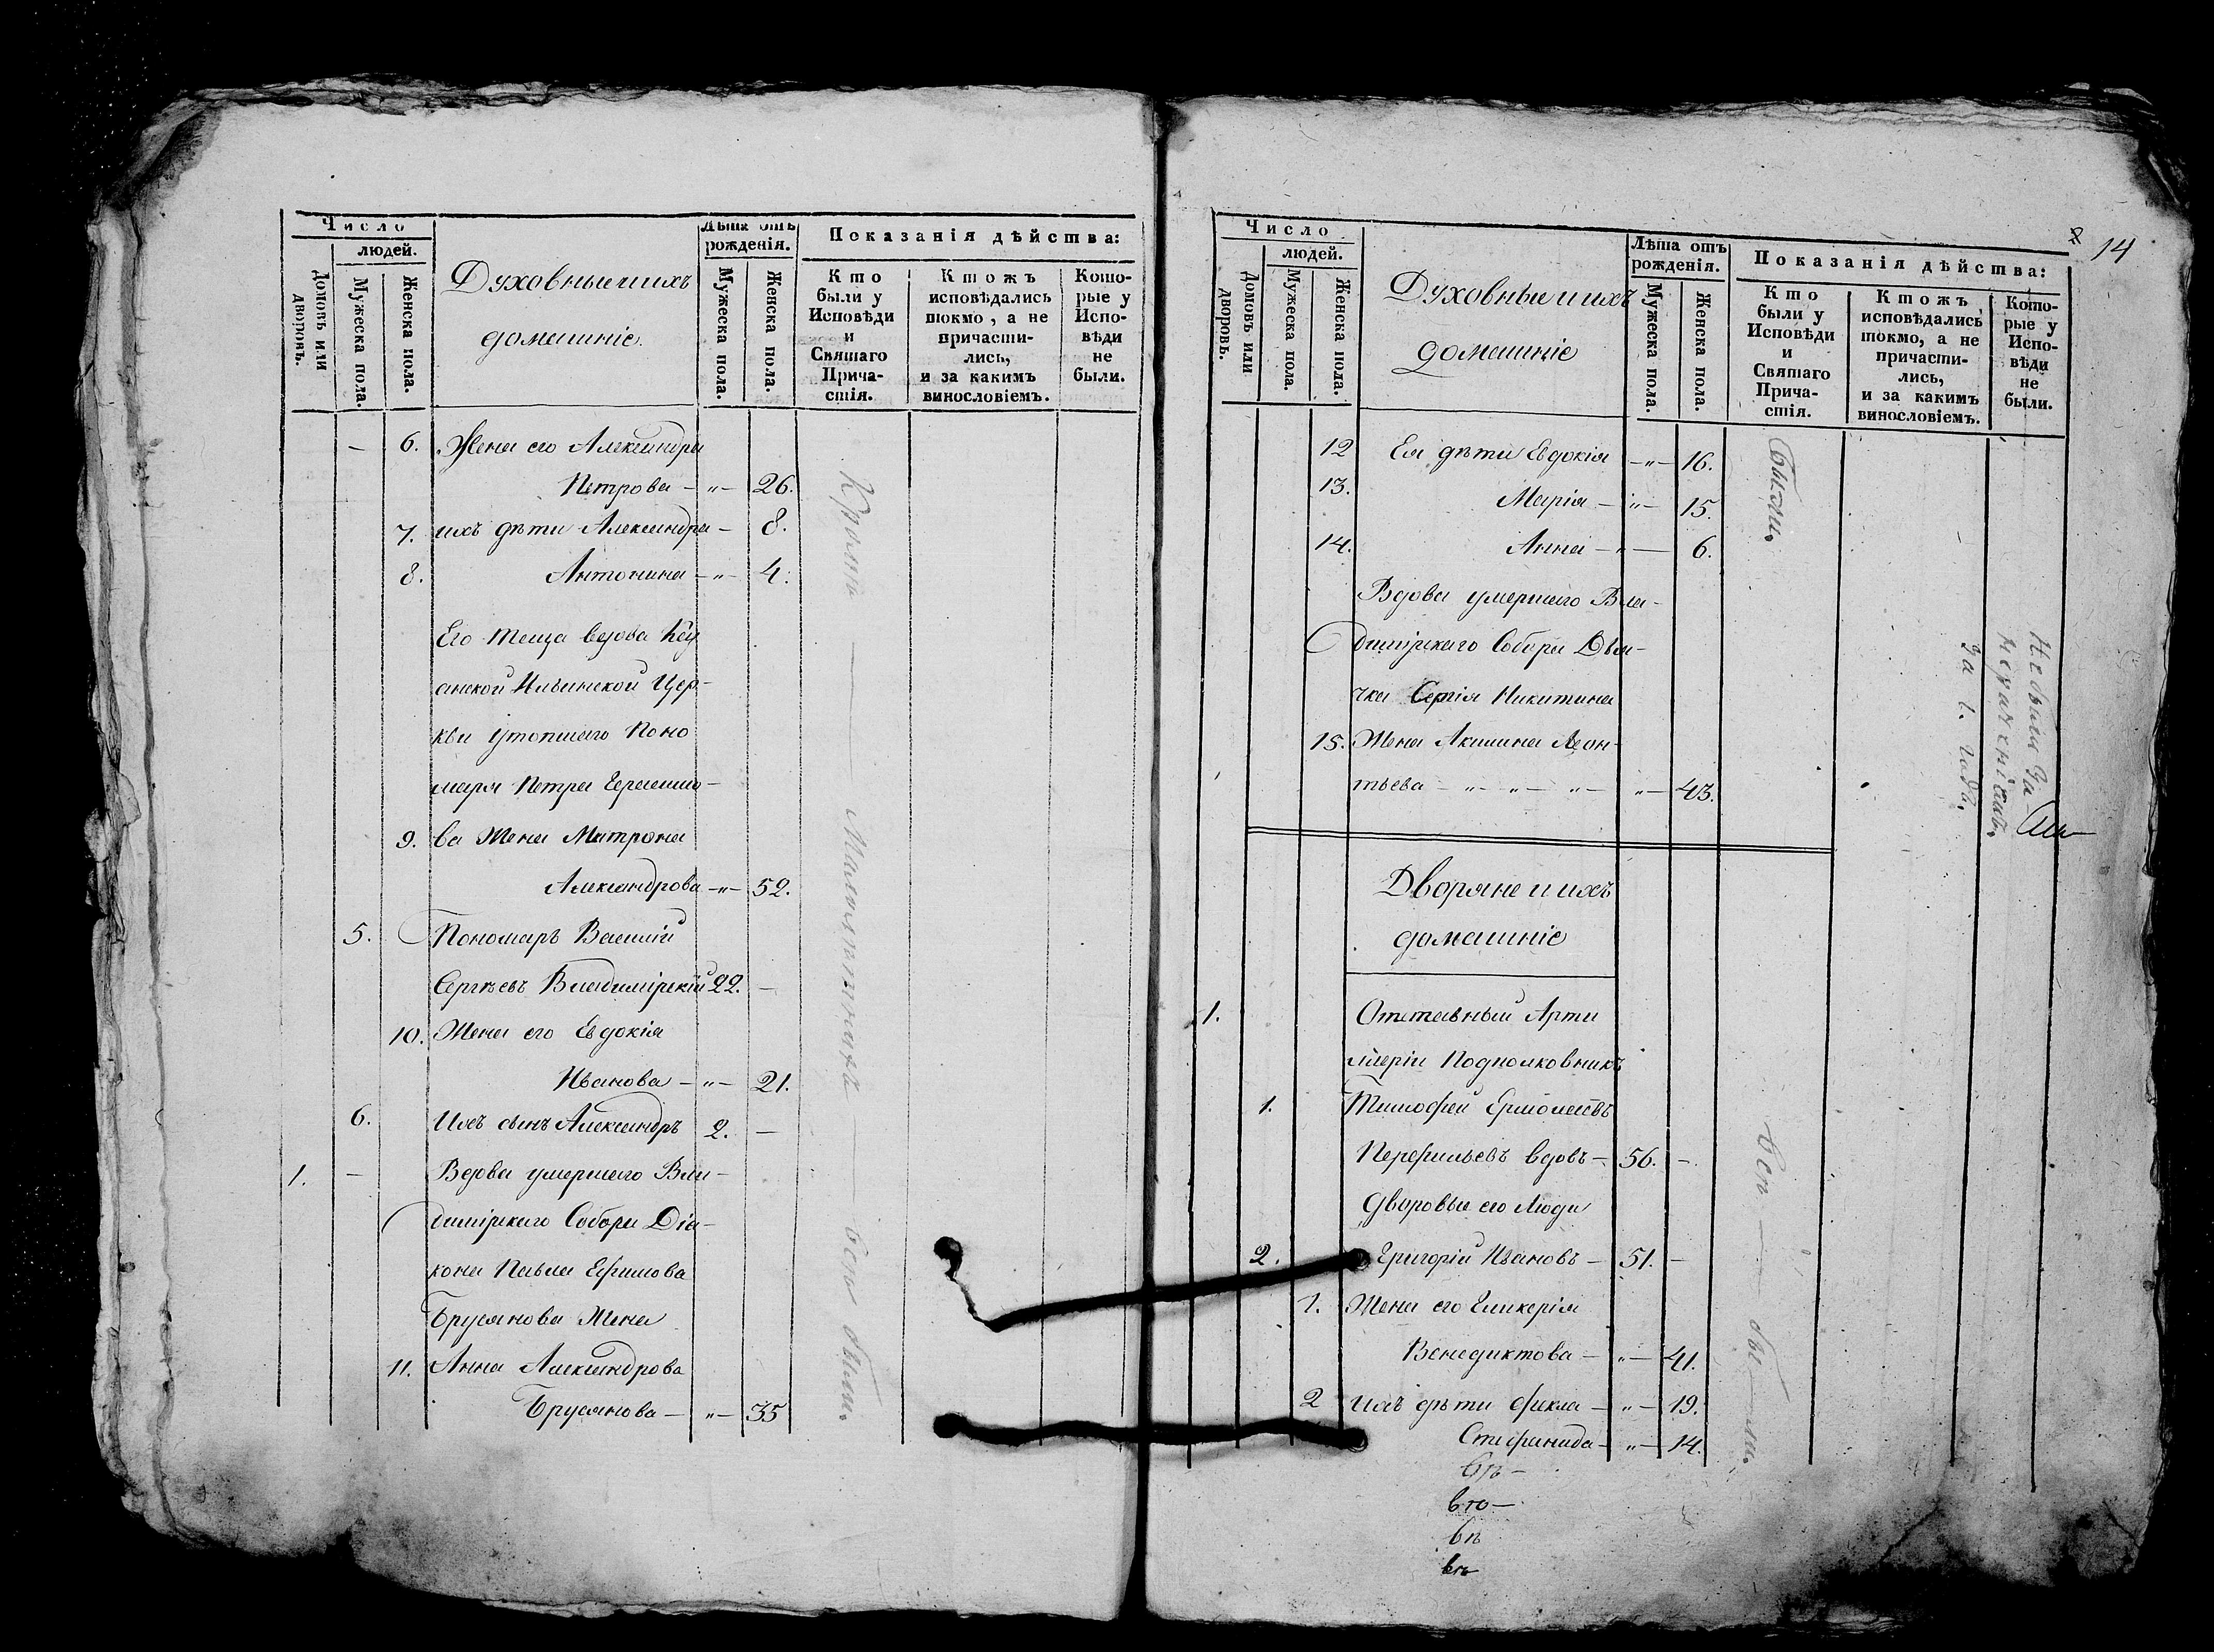 Число
людей.
Домовъ или дворовъ.
Мужеска пола.
Женска пола.
Духовные и ихъ
домашніе.
Лѣта отъ
рожденія.
Мужеска пола.
Женска пола.
Показанія дѣйства:
Кто
были у
Исповѣди
и
Святаго
Прича-
стія.
Ктожъ
исповѣдались
токмо, а не
причасти-
лись,
и за какимъ
винословіемъ.
Кото-
рые у
Испо-
вѣди
не
были.
— 6. Жена его Александра
Петрова — „ — 26.
7. ихъ дѣти Александра — 8.
8. Антонина — „ — 4.
Его теща вдова
Ильинской Цер-
кви утопшаго Поно
маря Петра Герасимо-
9. ва Жена Матрона
Александрова — „ — 52.
5. Пономарь Василій
Сергѣевъ Владимірскій 22. —
10. Жена его Евдокія
Иванова — „ — 21.
6. Ихъ сынъ Александръ 2. —
1. — Вдова умершаго Вла-
димірскаго Собора Діа-
кона Павла Ефимова
Брусянова Жена
11. Анна Александрова
Брусянова — „ — 35
Кромѣ — Малолѣтнихъ — всѣ были.
14
Число
людей.
Домовъ или дворовъ.
Мужеска пола.
Женска пола.
Духовные и ихъ
домашніе
Лѣта отъ
рожденія.
Мужеска пола.
Женска пола.
Показанія дѣйства:
Кто
были у
Исповѣди
и
Святаго
Прича-
стія.
Ктожъ
исповѣдались
токмо, а не
причасти-
лись,
и за какимъ
винословіемъ.
Кото-
рые у
Испо-
вѣди
не
были.
12 Ея дѣти Евдокія — „ — 16.
13. Марія — „ — 15.
14. Анна — „ — 6.
Были.
Вдова умершаго Вла-
димірскаго Собора Дья-
чка Сергія Никитина
15. Жена Акилина Леон-
тьева — „ — „ — „ — „ — 43.
Не была за
нераченіемъ.
за 1. годъ.
Дворяне и ихъ
домашніе
1. Отставный Арти
леріи Подполковникъ
1. Тимофей Ермолаевъ
Перфильевъ вдовъ — 56. —
Дворовые его люди
2. Григорій Ивановъ — 51. —
1. Жена его Гликерія
Венедиктова — „ — 41.
2 Ихъ дѣти Фекла — „ — 19.
Стефанида — „ — 14.
Всѣ — бы — ли.